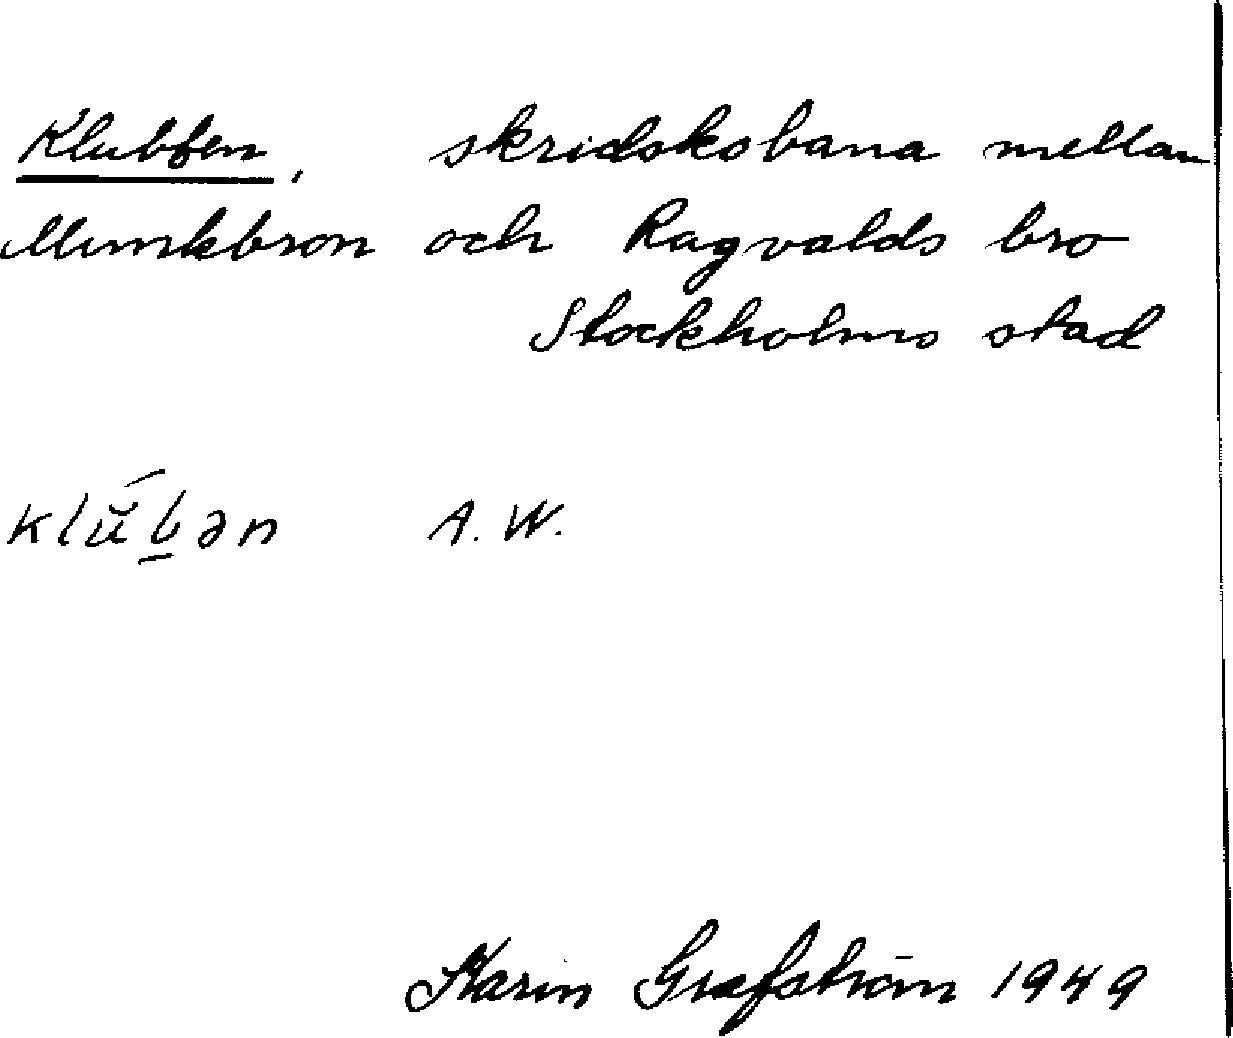 Klubben, skridskobana mellan
Munkbron och Ragvalds bro
Stockholms stad
klŭ́b̲ən A. W.
Karin Grafström 1949